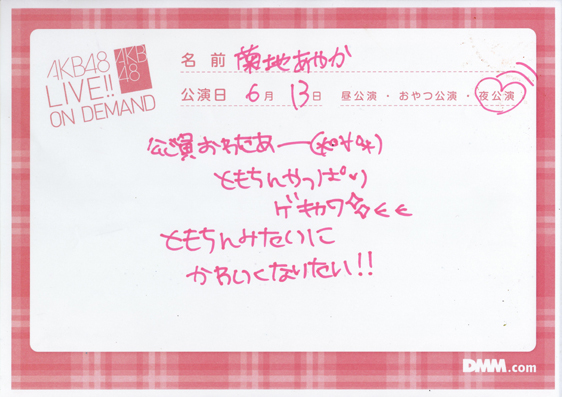 AKB48
LIVE!!
ON DEMAND
AKB
48
名前 菊地あやか
公演日 6月 13日 昼公演・おやつ公演・夜公演
公演おわたあー(*°▽°*)
ともちんやっぱ°、)
ゲキカワ☆☆∈∈
ともちんみたいに
かわいくなりたい!!
DMM.com